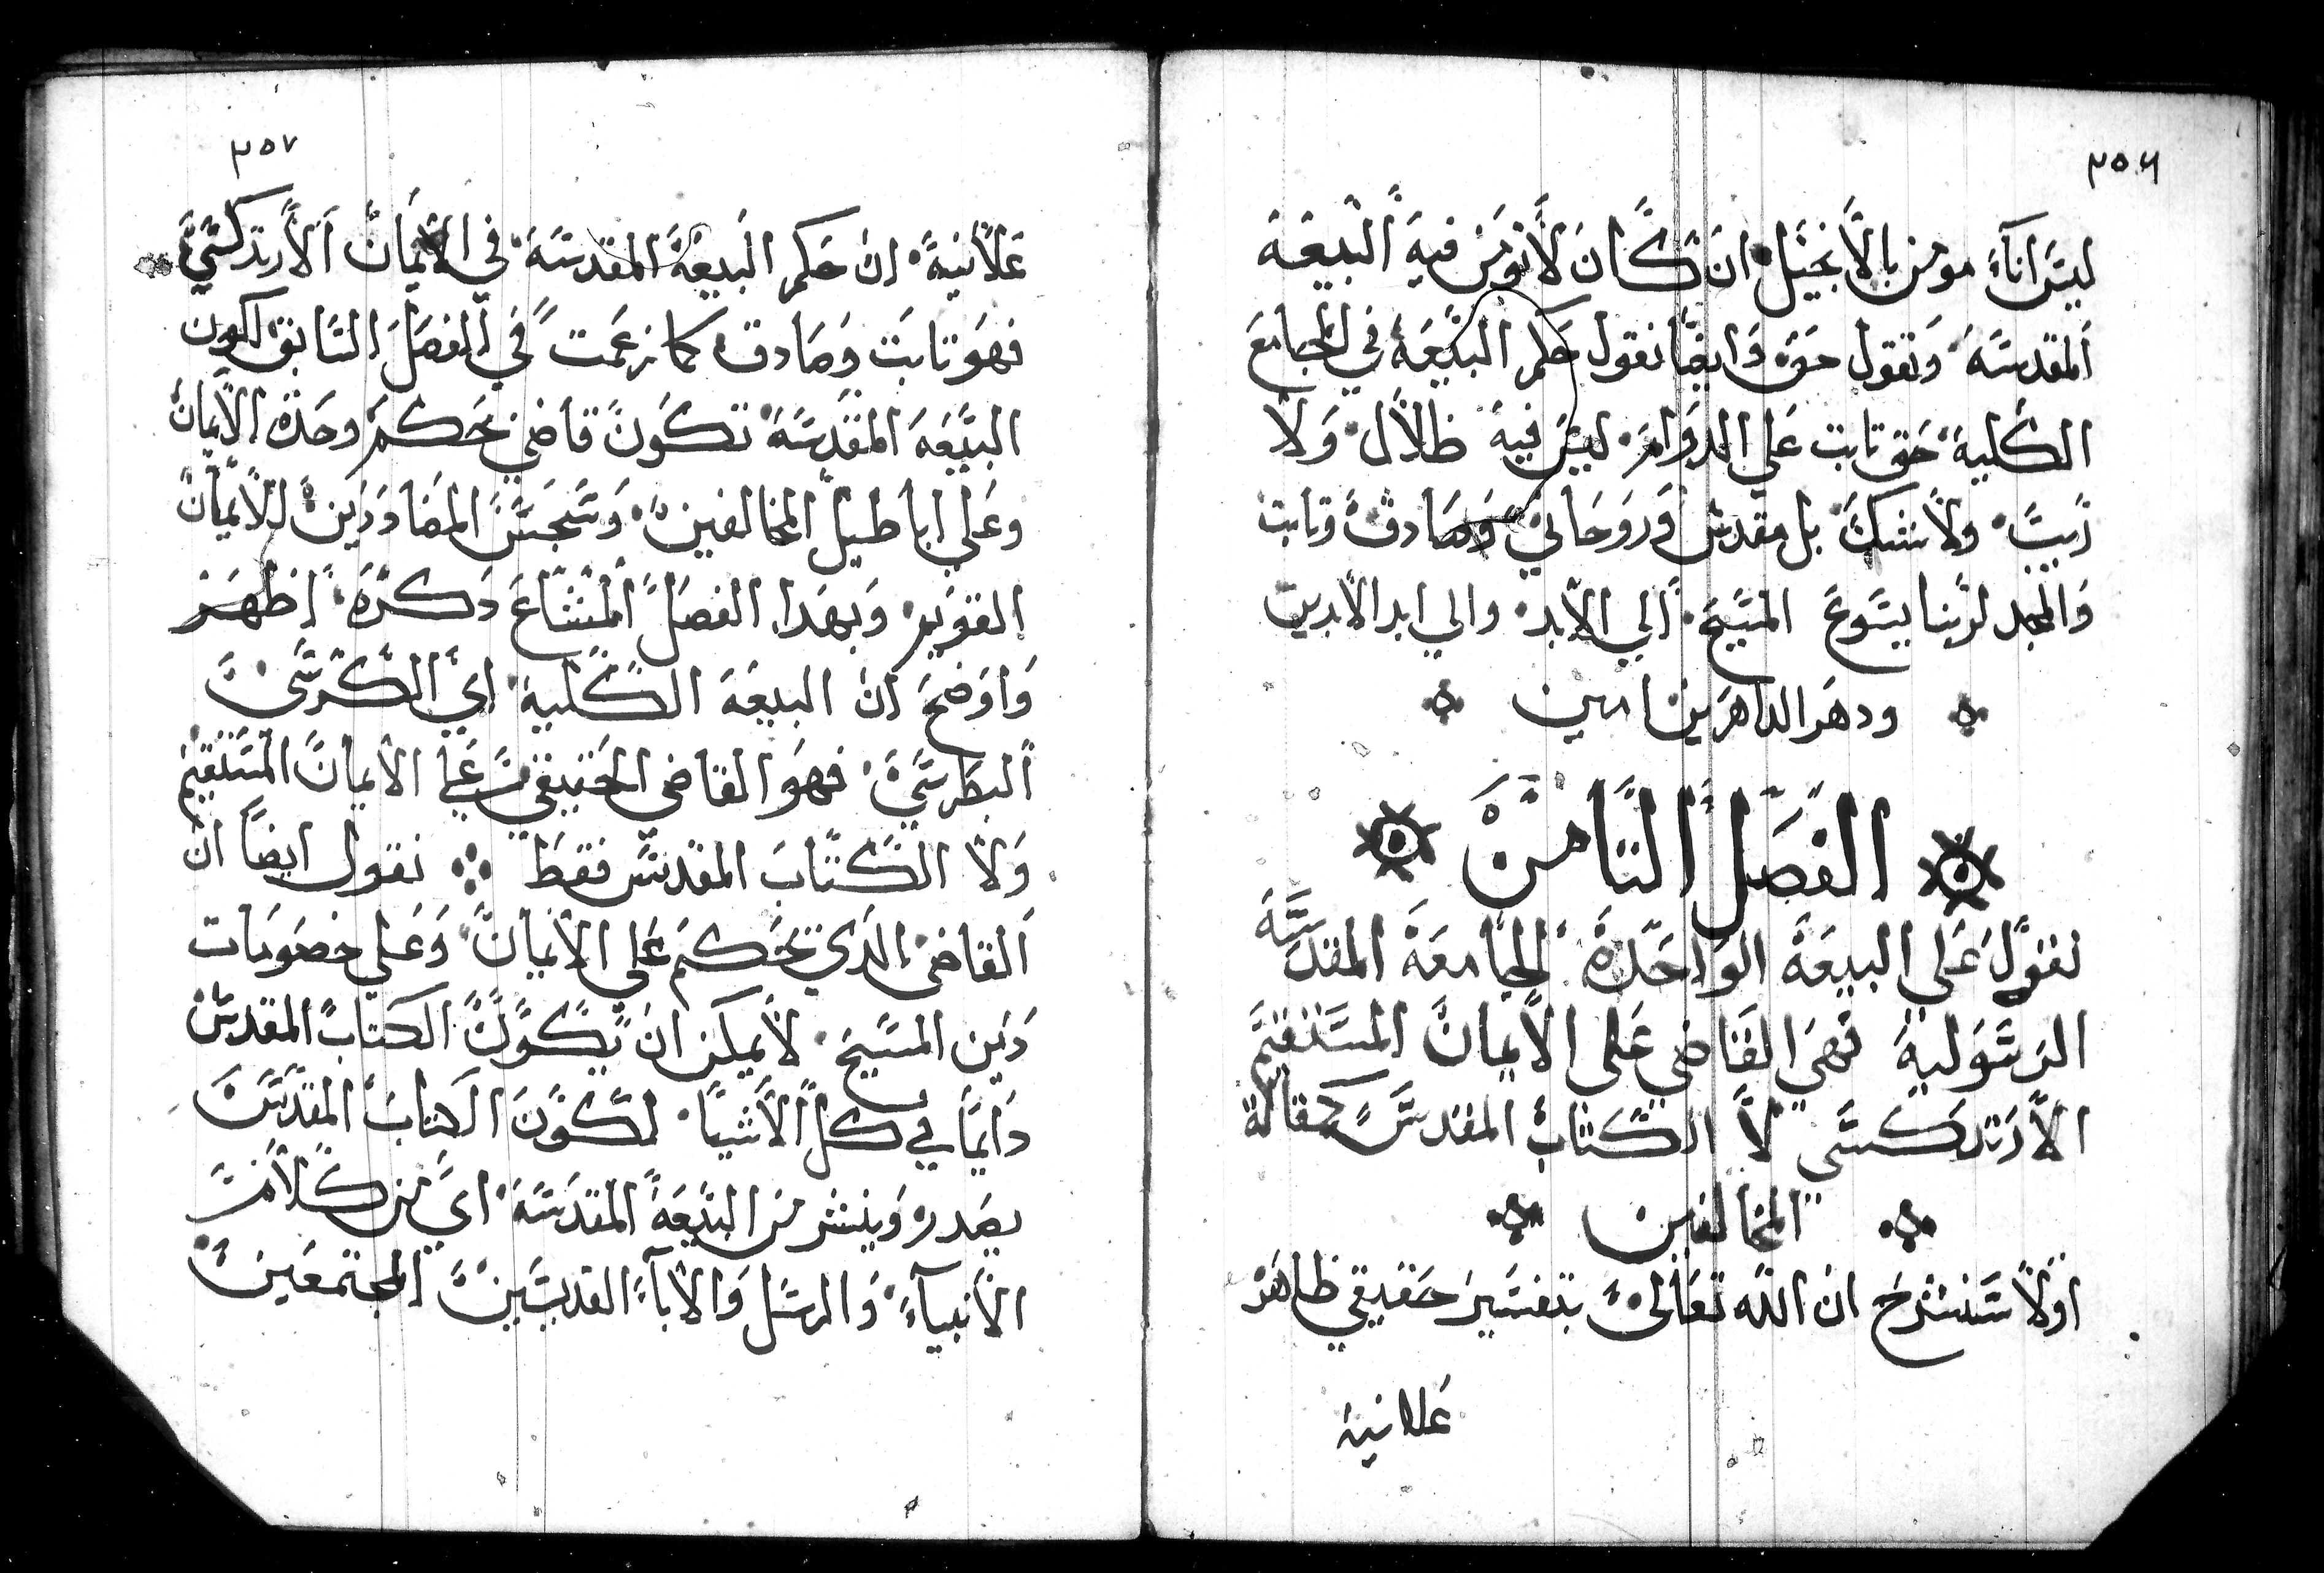 ٣٥٦
ليسَ اناءً مومن بالانجيل ان كان لانومن فيه البيعة
المقدسَه وتقول حق وايضًا نقول حكم البيعَة في المجامعَ
الكلية حق تابت علي الدوام ليسَ فيه ظلال ولا
ريبَ ولا شك بل مقدس وروحاني وصادق وتابت
والمجد لربنا يسَوع المسَيح الي الابد والي ابد الابدين
ودهر الداهرين امين
الفصل التامن
نقول علي البيعَة الواحدة الجامعة المقدسَة
الرسَولية فهي القاضي علي الايمان المسَتقيم
الارتدكسَي لا الكتاب المقدسَ كمقالة
المخالفين
اولا سَنشرح ان الله تعالي بتفسَير حقيقي ظاهر
علانية
٣٥٧
علانية ان حكم البيعة المقدسَة في الايمان الارتدكسَي
فهو تابت وصادق كما زعمت في الفصل السَابق لكون
البيَعه المقدسَة تكون قاضي تحكم وحدة الايمان
وعلي اباطيل المخالفين وسَجسَ المضاددين للايمان
القويم وبهدا الفصل المشاع دكره اظهر
واوضح ان البيعَة الكلية اي الكرسَي
البطرسَي فهو القاضي الحقيقي علي الايمان المسَتقيم
ولا الكتاب المقدسَ فقط نقول ايضًا ان
القاضي الدي تحكم علي الايمان وعلي خصومات
دين المسَيح لا يمكن ان يكون الكتاب المقدسَ
دايمًا في كل الاشيا لكون الكتاب المقدسَ
يصدر وينشر من البيَعة المقدسَة اي من كلام
الانبيآء والرسَل والابآء القديسَين المجتمعين